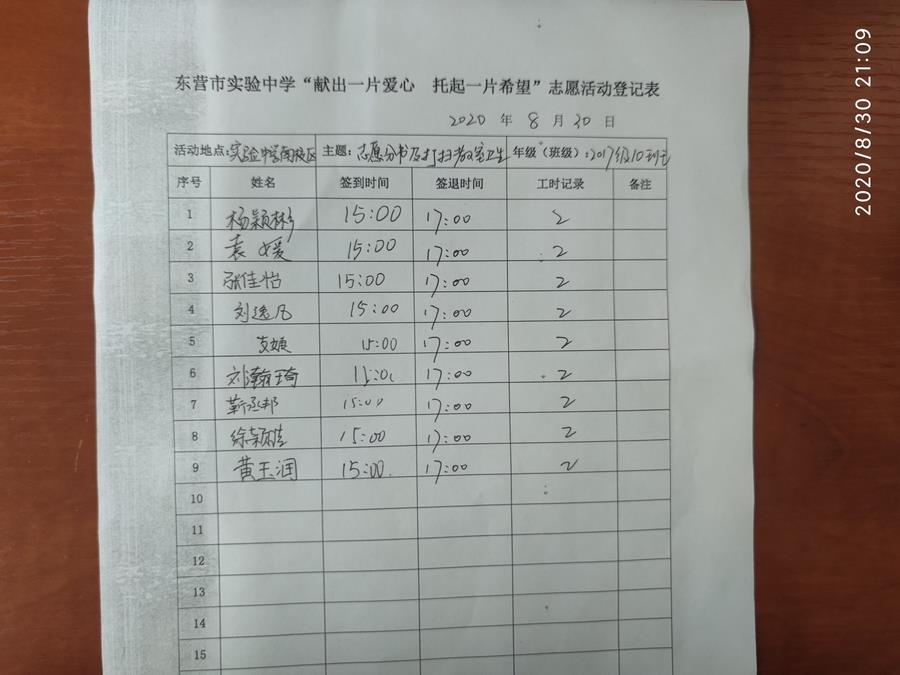 东营市实验中学“献出一片爱心 托起一片希望”志愿活动登记表
2020 年 8 月 30 日
活动地点:实验中学南校区 主题:志愿分书及打扫教室卫生 年级（班级）:2017级10班
序号 姓名 签到时间 签退时间 工时记录 备注
1 杨颖彬 15:00 17:00 2
2 袁媛 15:00 17:00 2
3 张佳怡 15:00 17:00 2
4 刘逸凡 15:00 17:00 2
5 15:00 17:00 2
6 刘瀚琦 15:00 17:00 2
7 靳丞邦 15:00 17:00 2
8 徐颖佳 15:00 17:00 2
9 黄玉润 15:00 17:00 2
10
11
12
13
14
15
2020/8/30 21:09